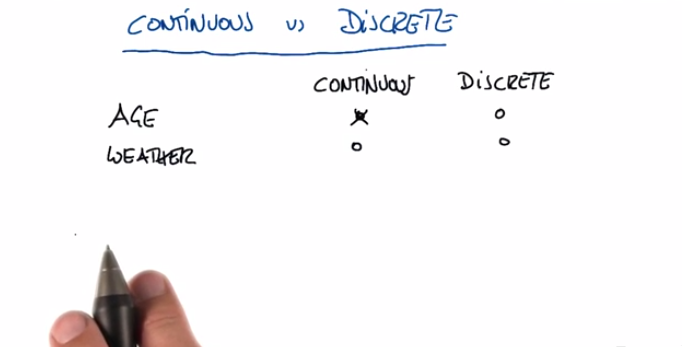 CONTINUOUS vs DISCRETE
CONTINUOUS DISCRETE
AGE
WEATHER